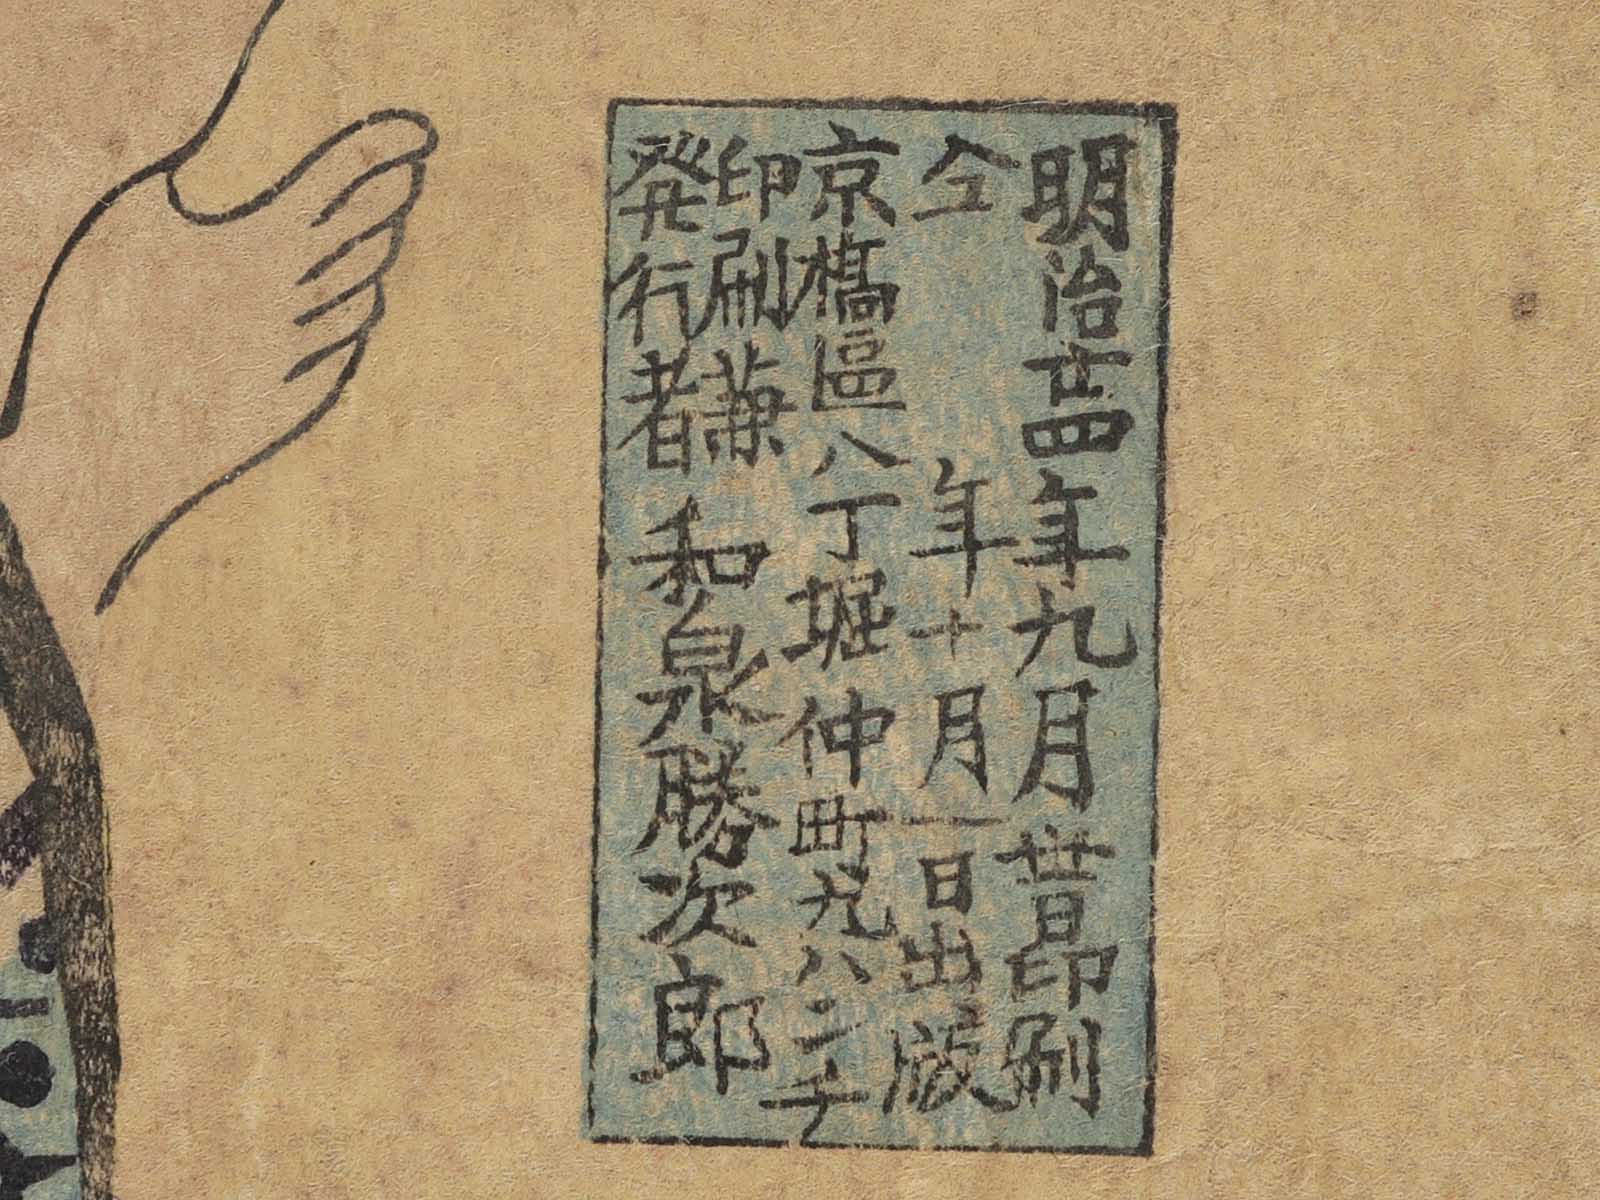 明治廿四年九月卅日印刷
仝年十月一日出版
京橋區八丁堀仲町九八二チ
印刷兼
発行者
和泉勝次郎